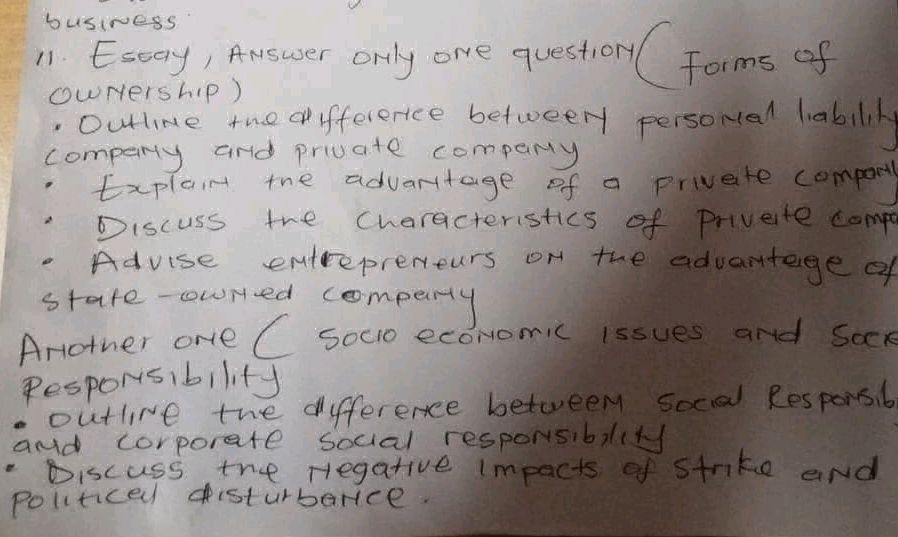 business
11. Essay, Answer only one question (Forms of
ownership)
• Outline the difference between personal liability
company and private company
• Explain the advantage of a private company
• Discuss the characteristics of private comp
• Advise entrepreneurs on the advantage of
state-owned company
Another one ( Socio economic issues and Soci
Responsibility
• outline the difference between social Responsib
and corporate social responsibility
• Discuss the negative impacts of strike and
political disturbance.